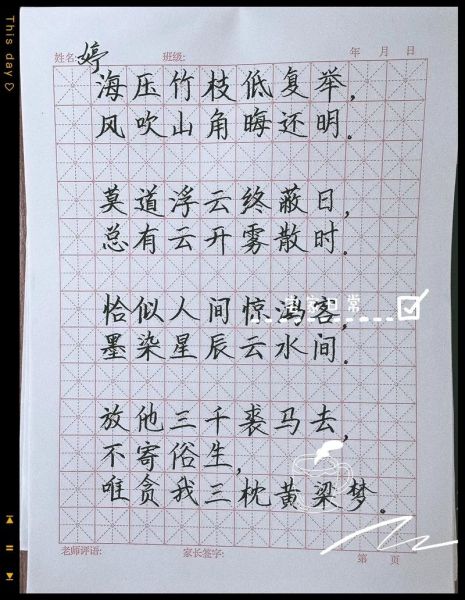 This day♡
姓名:婷 班级: 年 月 日
海压竹枝低复举,
风吹山角晦还明。
莫道浮云终蔽日,
总有云开雾散时.
恰似人间惊鸿客,
日常
墨染星辰云水间.
放他三千裘马去,
不寄俗生,
唯贪我三枕黄梁梦。
老师评语: 家长签字: 第 页